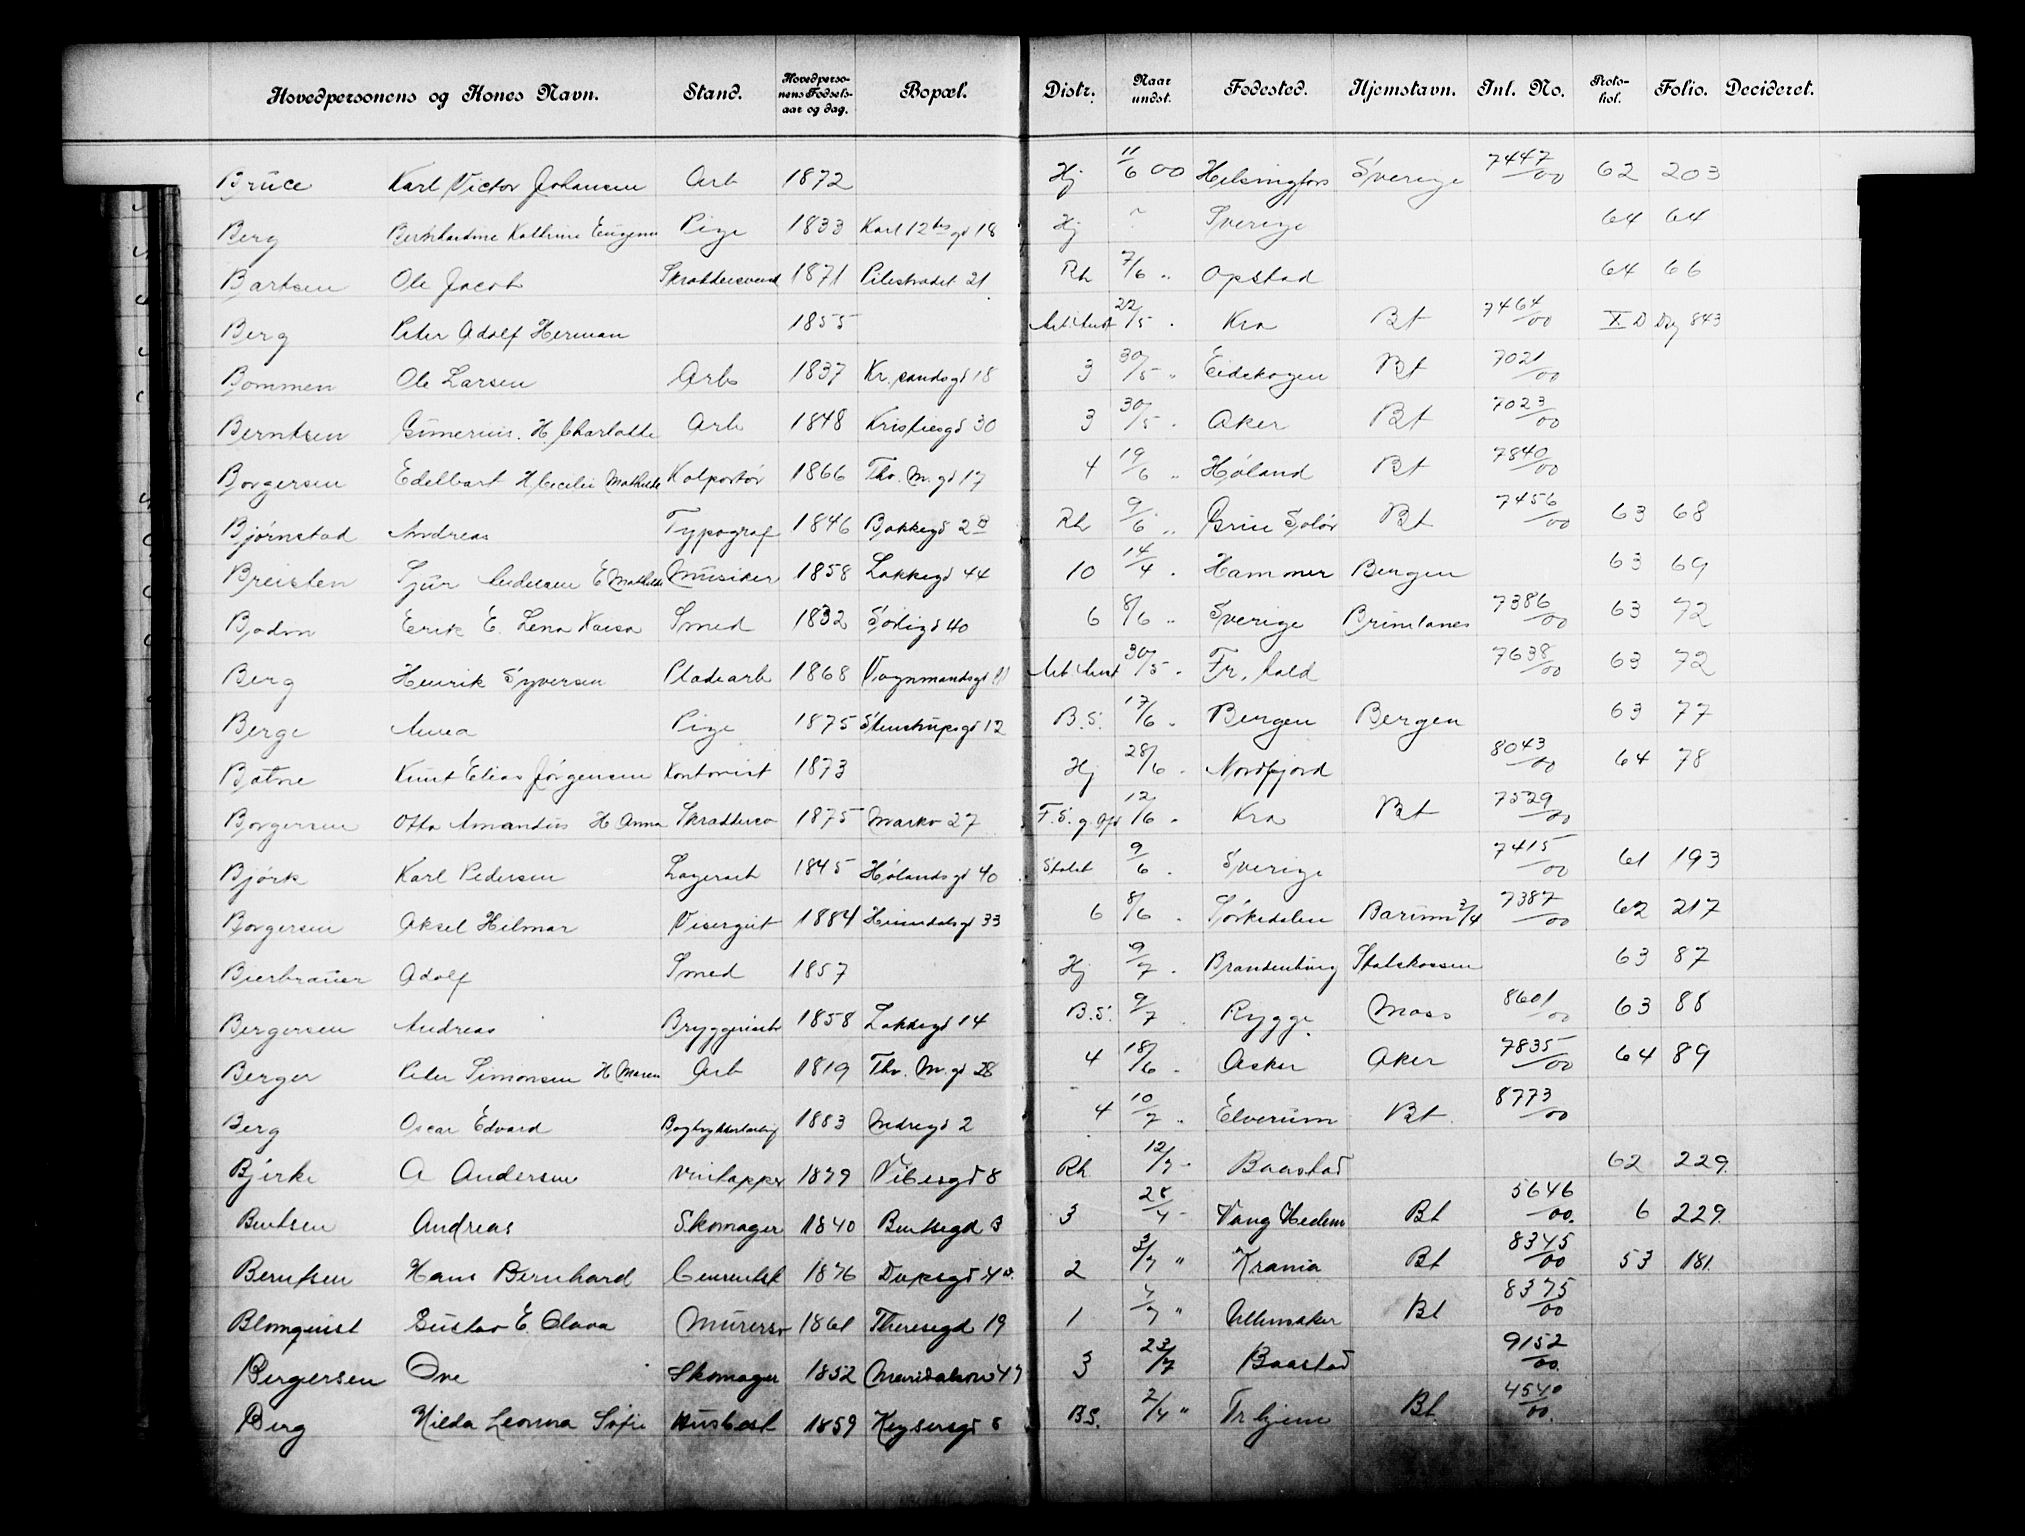 Hovedpersonens og Kones Navn. Stand. Hovedpersonens Fødselsaar og dag. Bopæl. Distr. Naar undst. Fødested. Hjemstavn. Inl. No. Protokol. Folio. Decideret.
Bruce Karl Victor Johansen Arb 1872 Hj 11/6 00 Helsingfors Sverige 7447/00 62 203
Berg Bernhardine Kathrine Eugenie Pige 1833 Karl 12tes gd 18 Hj " Sverige 64 64
Bartsen Ole Jacob Skræddersvend 1871 Pilestrædet 21 Rh 7/6 " Opstad 64 66
Berg Peter Adolf Herman 1855 22/5 " Kra Bt 7464/00 X D Dig 843
Bommen Ole Larsen Arb 1837 Kr.sandsgd 18 3 30/5 " Eidskogen Bt 7021/00
Berntsen Gunerius. H. Charlotte Arb 1848 Kristiesgd 30 3 30/5 " Aker Bt 7023/00
Borgersen Edelbart H Cecilie Mathilde Kolportør 1866 Thv. M. gd 17 4 19/6 " Høland Bt 7840/00
Bjørnstad Andreas Typograf 1846 Bakkegd 2 B Rh 9/6 " Grue Solør Bt 7456/00 63 68
Breisten Sjur Andersen E Mathilde Musiker 1858 Lakkegd 44 10 14/4 " Hammer Bergen 63 69
Erik E. Lena Kaisa Smed 1832 Sørligd 40 6 8/6 " Sverige Brunlanes 7386/00 63 72
Berg Henrik Syversen Pladearb 1868 Vognmandsgd 11 30/5 " Fr. hald 7638/00 63 72
Berge Anna Pige 1875 Stenstrupsgd 12 B.S. 17/6 " Bergen Bergen 63 77
Batne Knut Elias Jørgensen Kontorist 1873 Hj 28/6 " Nordfjord 8043/00 64 78
Borgersen Otto Amandus H Anna Skræddersv 1875 Markv 27 F.S. g. Opf 12/6 " Kra Bt 7529/00
Bjørk Karl Pedersen Lagerarb 1845 Hølandsgd 40 Stalet 9/6 " Sverige 7415/00 61 193
Borgersen Aksel Hilmar Visergut 1884 Heimdalsgd 33 6 8/6 " Sørkedalen Bærum 3/4 7387/00 62 217
Bierbrauer Adolf Smed 1857 Hj 9/7 " Brandenburg Statskassen 63 87
Bergersen Andreas Bryggeriarb 1858 Lakkegd 14 B.S. 9/7 " Rygge Moss 8601/00 63 88
Berger Peter Simonsen H Maren Arb 1819 Thv. M. gd 28 4 18/6 " Asker Aker 7835/00 64 89
Berg Oscar Edvard 1883 Indregd 2 4 10/7 " Elverum Bt 8773/00
Bjerke A Andersen Vintapper 1879 Vibesgd 8 Rh 12/7 " Baastad 62 229.
Bentsen Andreas Skomager 1840 Bentsegd 3 3 28/4 " Vang Hedem Bt 5646/00. 6 229.
Berntsen Hans Bernhard Cementsk 1876 Dopsgd 4 2 3/7 " Krania Bt 8345/00 53 181.
Blomquist Gustav E. Olava Murersv 1861 Theresegd 19 1 4/7 " Ullensaker Bt 8375/00
Bergersen Ove Skomager 1852 Maridalsv 47 3 23/7 Baastad 9152/00.
Berg Hilda Leonna Sofie Husbest 1859 Keysersgd 6 B.S. 2/4 " Trhjem Bt 4540/00.